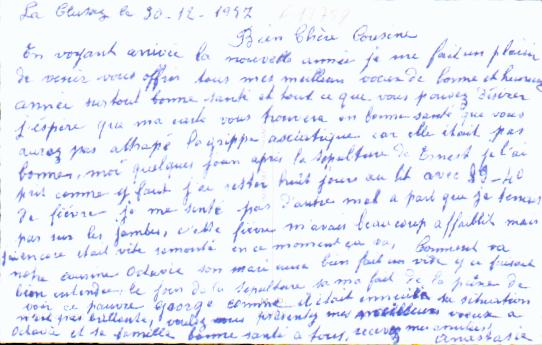 La Clusaz le 30-12-1957
Bien Chère Cousine
En voyant arrivée la nouvelle année je me fait un plaisir
de venir vous offrir tous mes meilleur vœux de bonne et heureuse
année surtout bonne santé et tout ce que vous pouvez désirer
j'espère que ma carte vous trouvera en bonne santé que vous
aurez pas attrapé la grippe asciatique car elle était pas
bonne, moi quelques jours après la sépulture de Ernest je l'ai
prit comme y faut j'ai rester huit jours au lit avec 39-40
de fièvre je me senté pas d'autre mal a part que je tenais
pas sur les jambes, cette fièvre m'avais beaucoup affaiblit mais
j'ai encore était vite remonté en ce moment ça va, Comment va
notre cousine Octavie son mari aura bien fait un vide y ce passait
bien entendu, le jour de la sépulture sa ma fait de la peine de
voir ce pauvre george comme il était ennuié sa situation
n'est pas brillante, voulez vous présentez mes meilleurs voeux a
Octavie et sa famille bonne santé à tous, recevez mes amitiés
Anastasie